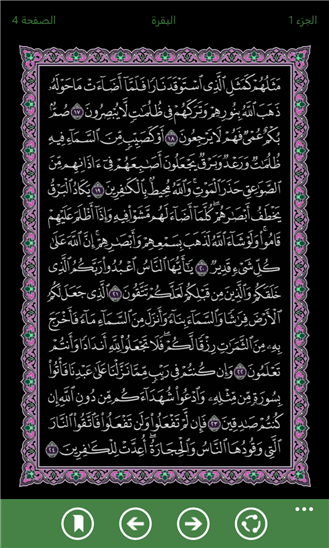 الجزء 1 البقرة الصفحة 4
مَثَلُهُمْ كَمَثَلِ ٱلَّذِى ٱسْتَوْقَدَ نَارًا فَلَمَّآ أَضَآءَتْ مَا حَوْلَهُۥ
ذَهَبَ ٱللَّهُ بِنُورِهِمْ وَتَرَكَهُمْ فِى ظُلُمَٰتٍ لَّا يُبْصِرُونَ ١٧ صُمٌّۢ
بُكْمٌ عُمْىٌ فَهُمْ لَا يَرْجِعُونَ ١٨ أَوْ كَصَيِّبٍ مِّنَ ٱلسَّمَآءِ فِيهِ
ظُلُمَٰتٌ وَرَعْدٌ وَبَرْقٌ يَجْعَلُونَ أَصَٰبِعَهُمْ فِىٓ ءَاذَانِهِم مِّنَ
ٱلصَّوَٰعِقِ حَذَرَ ٱلْمَوْتِ وَٱللَّهُ مُحِيطٌۢ بِٱلْكَٰفِرِينَ ١٩ يَكَادُ ٱلْبَرْقُ
يَخْطَفُ أَبْصَٰرَهُمْ كُلَّمَآ أَضَآءَ لَهُم مَّشَوْا۟ فِيهِ وَإِذَآ أَظْلَمَ عَلَيْهِمْ
قَامُوا۟ وَلَوْ شَآءَ ٱللَّهُ لَذَهَبَ بِسَمْعِهِمْ وَأَبْصَٰرِهِمْ إِنَّ ٱللَّهَ عَلَىٰ
كُلِّ شَىْءٍ قَدِيرٌ ٢٠ يَٰٓأَيُّهَا ٱلنَّاسُ ٱعْبُدُوا۟ رَبَّكُمُ ٱلَّذِى
خَلَقَكُمْ وَٱلَّذِينَ مِن قَبْلِكُمْ لَعَلَّكُمْ تَتَّقُونَ ٢١ ٱلَّذِى جَعَلَ لَكُمُ
ٱلْأَرْضَ فِرَٰشًا وَٱلسَّمَآءَ بِنَآءً وَأَنزَلَ مِنَ ٱلسَّمَآءِ مَآءً فَأَخْرَجَ
بِهِۦ مِنَ ٱلثَّمَرَٰتِ رِزْقًا لَّكُمْ فَلَا تَجْعَلُوا۟ لِلَّهِ أَندَادًا وَأَنتُمْ
تَعْلَمُونَ ٢٢ وَإِن كُنتُمْ فِى رَيْبٍ مِّمَّا نَزَّلْنَا عَلَىٰ عَبْدِنَا فَأْتُوا۟
بِسُورَةٍ مِّن مِّثْلِهِۦ وَٱدْعُوا۟ شُهَدَآءَكُم مِّن دُونِ ٱللَّهِ إِن
كُنتُمْ صَٰدِقِينَ ٢٣ فَإِن لَّمْ تَفْعَلُوا۟ وَلَن تَفْعَلُوا۟ فَٱتَّقُوا۟ ٱلنَّارَ
ٱلَّتِى وَقُودُهَا ٱلنَّاسُ وَٱلْحِجَارَةُ أُعِدَّتْ لِلْكَٰفِرِينَ ٢٤